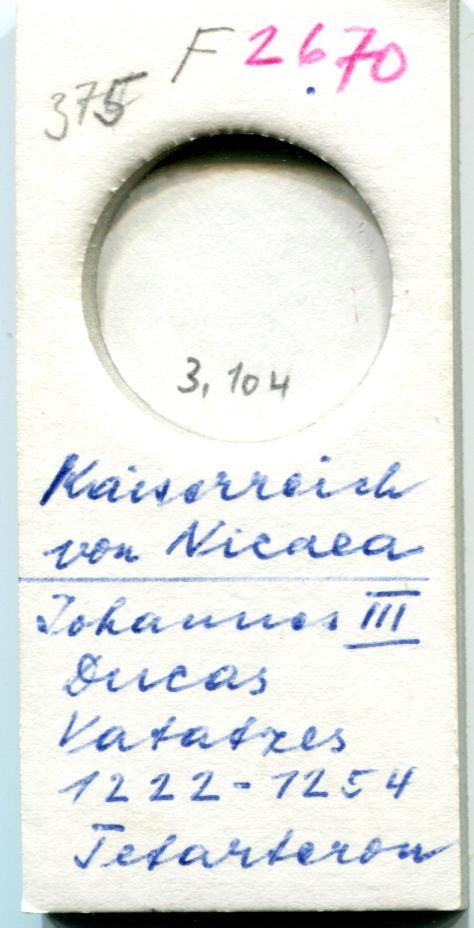 F 2670
375
3,104
Kaiserreich
von Nicaea
Johannes III
Ducas
Vatatzes
1222-1254
Tetarteron